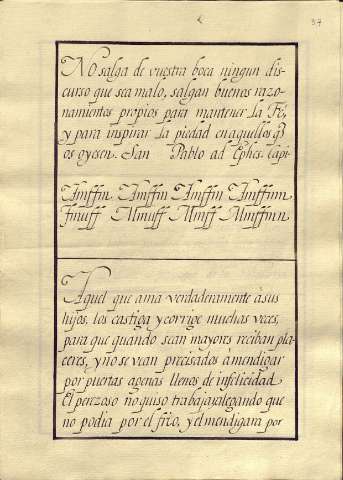 37
No salga de vuestra boca ningun dis-
curso que sea malo, salgan buenos razo-
namientos propios para mantener la Fé,
y para inspirar la piedad en aquellos q̃
os oyesen. San Pablo ad Ephes. Capi-
Aquel que ama verdaderamente à sus
hijos, los castiga y corrige muchas veces,
para que quando sean mayores reciban pla-
ceres, y no se vean precisados à mendigar
por puertas agenas llenos de infelicidad.
El perezoso no quiso trabajar alegando que
no podia por el frio, y el mendigara por